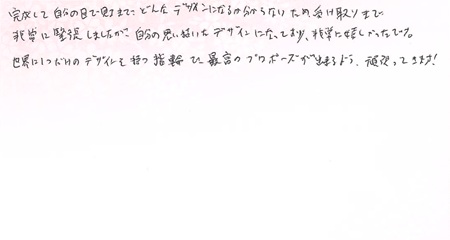 完成して自分の目で見るまで、どんなデザインになるか分からないため受け取りまで
非常に緊張しましたが、自分の思い描いたデザインになっており、非常に嬉しかったです。
世界に1つだけのデザインを持つ指輪で最高のプロポーズが出来るよう、頑張ってきます!